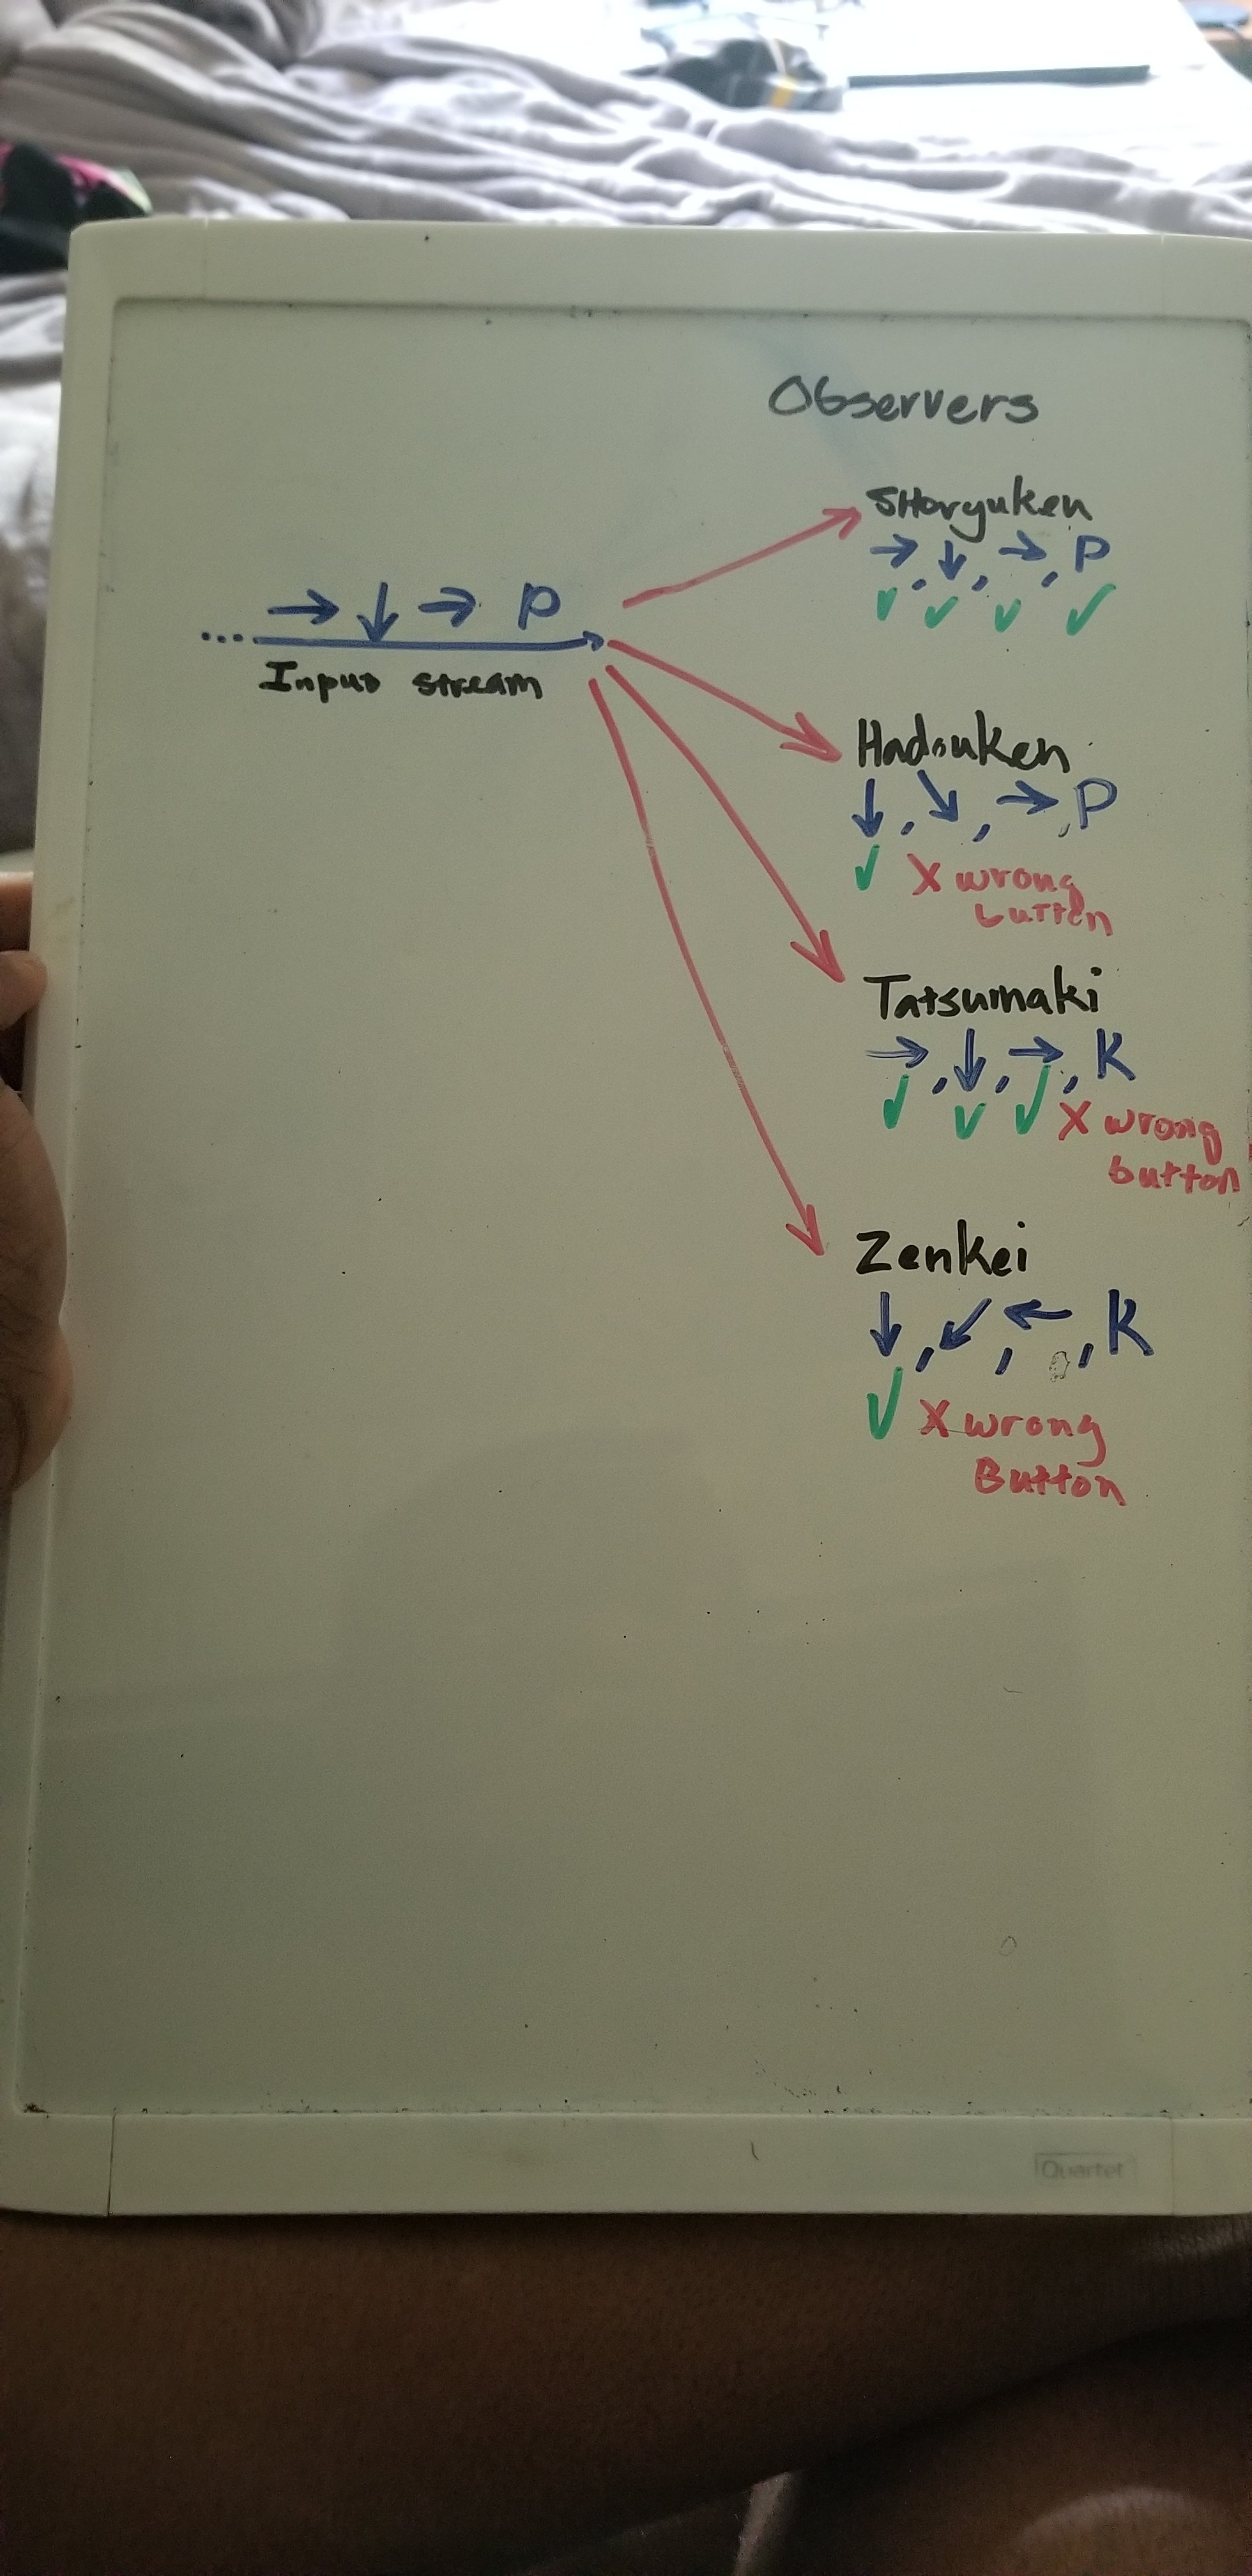 Observers
SHoryuken
→, ↓, →, P
✓ ✓ ✓ ✓
→ ↓ → P
...
Input stream
Hadouken
↓, ↘, →, P
✓ X wrong
button
Tatsumaki
→, ↓, →, K
✓ ✓ ✓ X wrong
button
Zenkei
↓, ↙, ←, K
✓ X wrong
Button
Quartet